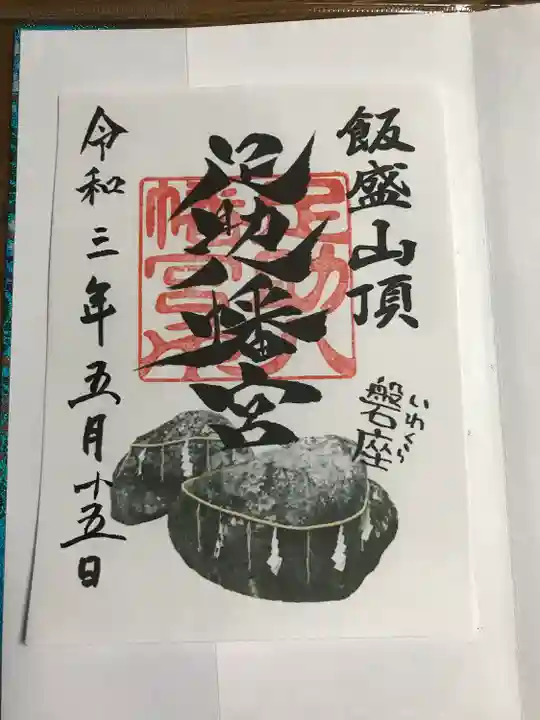 飯盛山頂
盤石座
いわくら
足助八幡宮
令和三年五月十五日